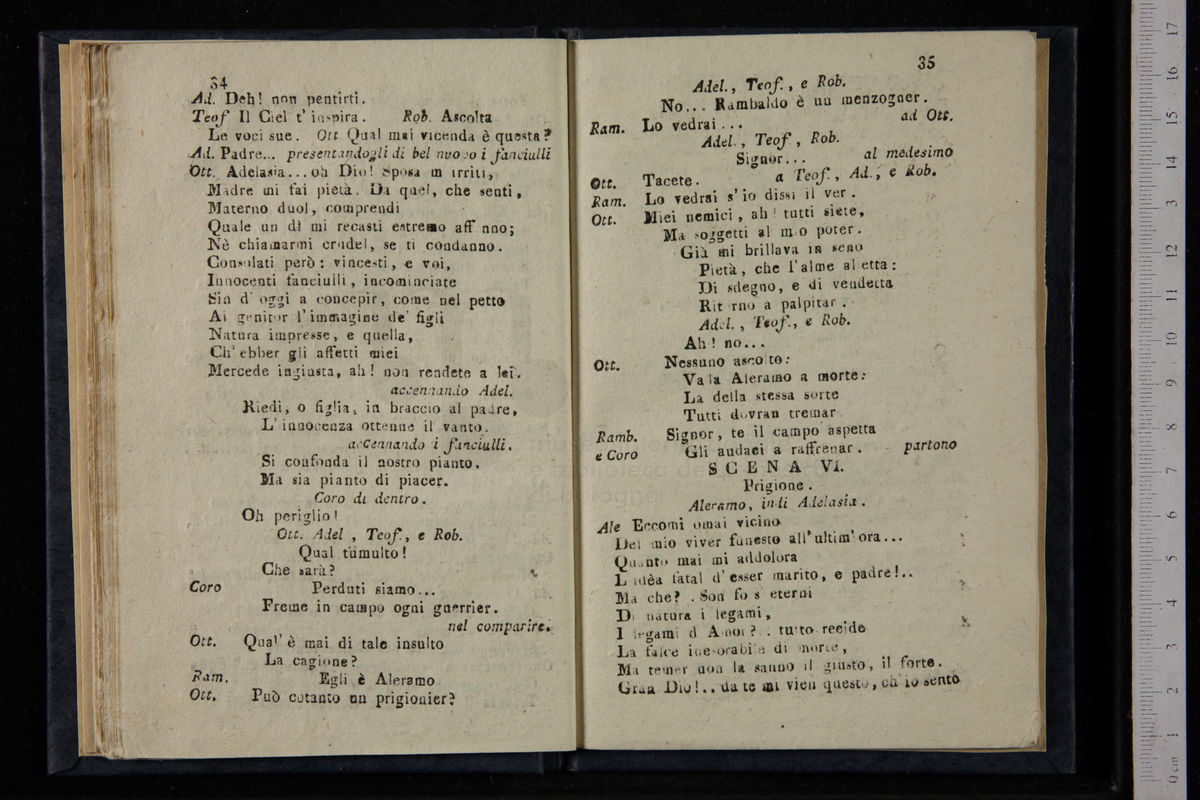 34
Ad. Deh! non pentirti.
Teof Il Ciel t' inspira. Rob. Ascolta
Le voci sue. Ott Qual mai vicenda è questa?
Ad. Padre... presentandogli di bel nuovo i fanciulli
Ott. Adelasia... oh Dio! Sposa m irriti,
Madre mi fai pietà. Da quel, che senti,
Materno duol, comprendi
Quale un dì mi recasti estremo aff nno;
Nè chiamarmi crudel, se ti condanno.
Consolati però: vincesti, e voi,
Innocenti fanciulli, incominciate
Sin d' oggi a concepir, come nel petto
Ai genitor l' immagine de' figli
Natura impresse, e quella,
Ch' ebber gli affetti miei
Mercede ingiusta, ah! non rendete a lei.
accennando Adel.
Riedi, o figlia, in braccio al padre,
L' innocenza ottenne il vanto.
accennando i fanciulli.
Si confonda il nostro pianto.
Ma sia pianto di piacer.
Coro di dentro.
Oh periglio!
Ott. Adel , Teof., e Rob.
Qual tumulto!
Che sarà?
Coro Perduti siamo...
Freme in campo ogni guerrier.
nel comparire.
Ott. Qual' è mai di tale insulto
La cagione?
Ram. Egli è Aleramo
Ott. Può cotanto un prigionier?
35
Adel., Teof., e Rob.
No... Rambaldo è un menzogner.
Ram. Lo vedrai... ad Ott.
Adel., Teof , Rob.
Signor... al medesimo
Ott. Tacete. a Teof., Ad., e Rob.
Ram. Lo vedrai s' io dissi il ver.
Ott. Miei nemici, ah! tutti siete,
Ma soggetti al mio poter.
Già mi brillava in seno
Pietà, che l' alme alletta:
Di sdegno, e di vendetta
Rit rno a palpitar.
Adel., Teof., e Rob.
Ah! no...
Ott. Nessuno ascolto:
Vada Aleramo a morte:
La della stessa sorte
Tutti dovran tremar
Ramb. Signor, te il campo aspetta
e Coro Gli audaci a raffrenar. partono
SCENA VI.
Prigione.
Aleramo, indi Adelasia.
Ale Eccomi omai vicino
Del mio viver funesto all' ultim' ora...
Quanto mai mi addolora
L idèa fatal d' esser marito, e padre!..
Ma che? . Son fo s eterni
Di natura i legami,
I legami d Amor? . tutto recide
La falce inesorabile di morte,
Ma temer non la sanno il giusto, il forte.
Gran Dio!.. da te mi vien questo, ch' io sento